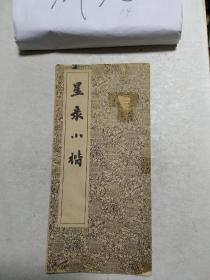 星录小楷